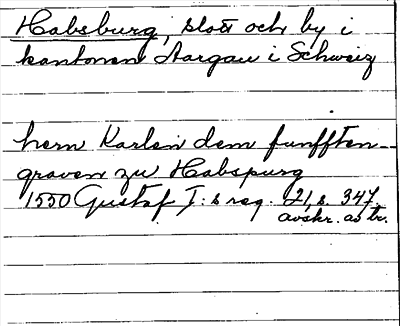 Habsburg, slott och by i
kantonen Aargau i Schweiz
hern Karlen dem funfften --
graven zu Habspurg
1550 Gustaf I:s reg. 21, s. 347.
avskr. av tr.